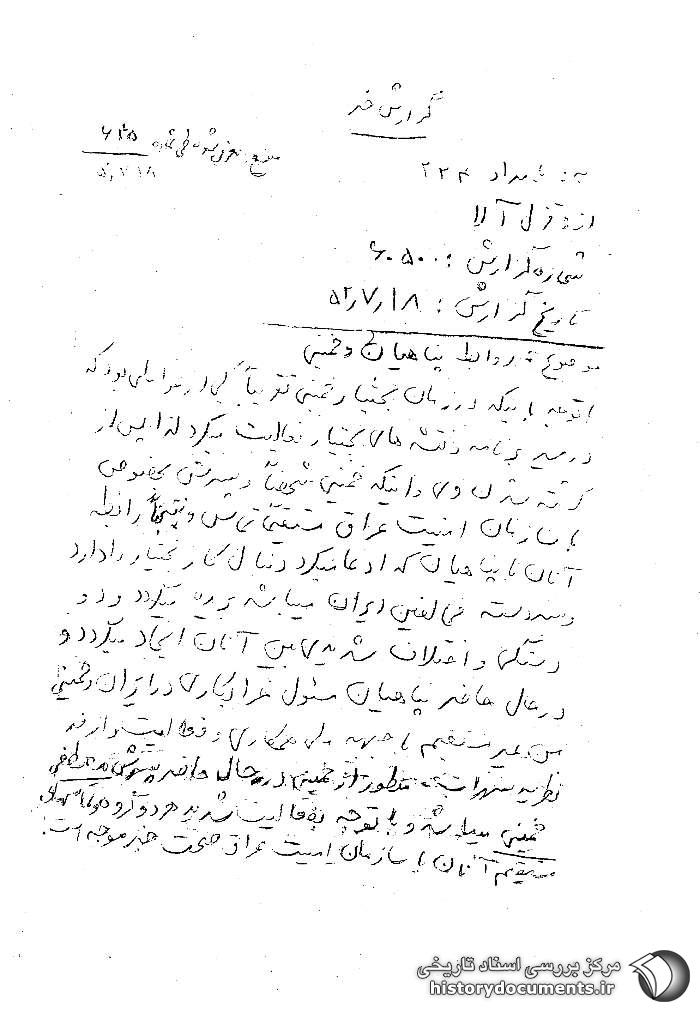 گزارش خبر
منبع: شماره ۶۳۵
۵۲٫۷٫۱۸
به: بامداد ۲۳۴
از: قزل آلا
شماره گزارش: ۶۰۵۰۰
تاریخ گزارش: ۵۲٫۷٫۱۸
موضوع: روابط پناهیان و خمینی
با توجه باینکه در زمان بختیار خمینی تقریباً یکی از عواملی بود که
در مسیر برنامه و نقشه های بختیار فعالیت میکرد لذا پس از
کشته شدن وی و اینکه خمینی شخصاً و پسرش بخصوص
با سازمان امنیت عراق مستقیماً تماس و نتیجتاً رابطه
آنان با پناهیان که ادعا میکرد دنبال کار بختیار را دارد
و سردسته مخالفین ایران میباشد بریده میگردد و دو
دستگی و اختلاف شدیدی بین آنان ایجاد میگردد و
در حال حاضر پناهیان مسئول خرابکاری در ایران و خمینی
من غیر مستقیم با جبهه ملی همکاری و فعالیت دارند
نظریه منظور از خمینی در حال حاضر پسرش مصطفی
خمینی میباشد و با توجه به فعالیت شدید هر دو گروه و
مستقیم آنان با سازمان امنیت عراق صحت خبر موجه است.
مرکز بررسی اسناد تاریخی
historydocuments.ir